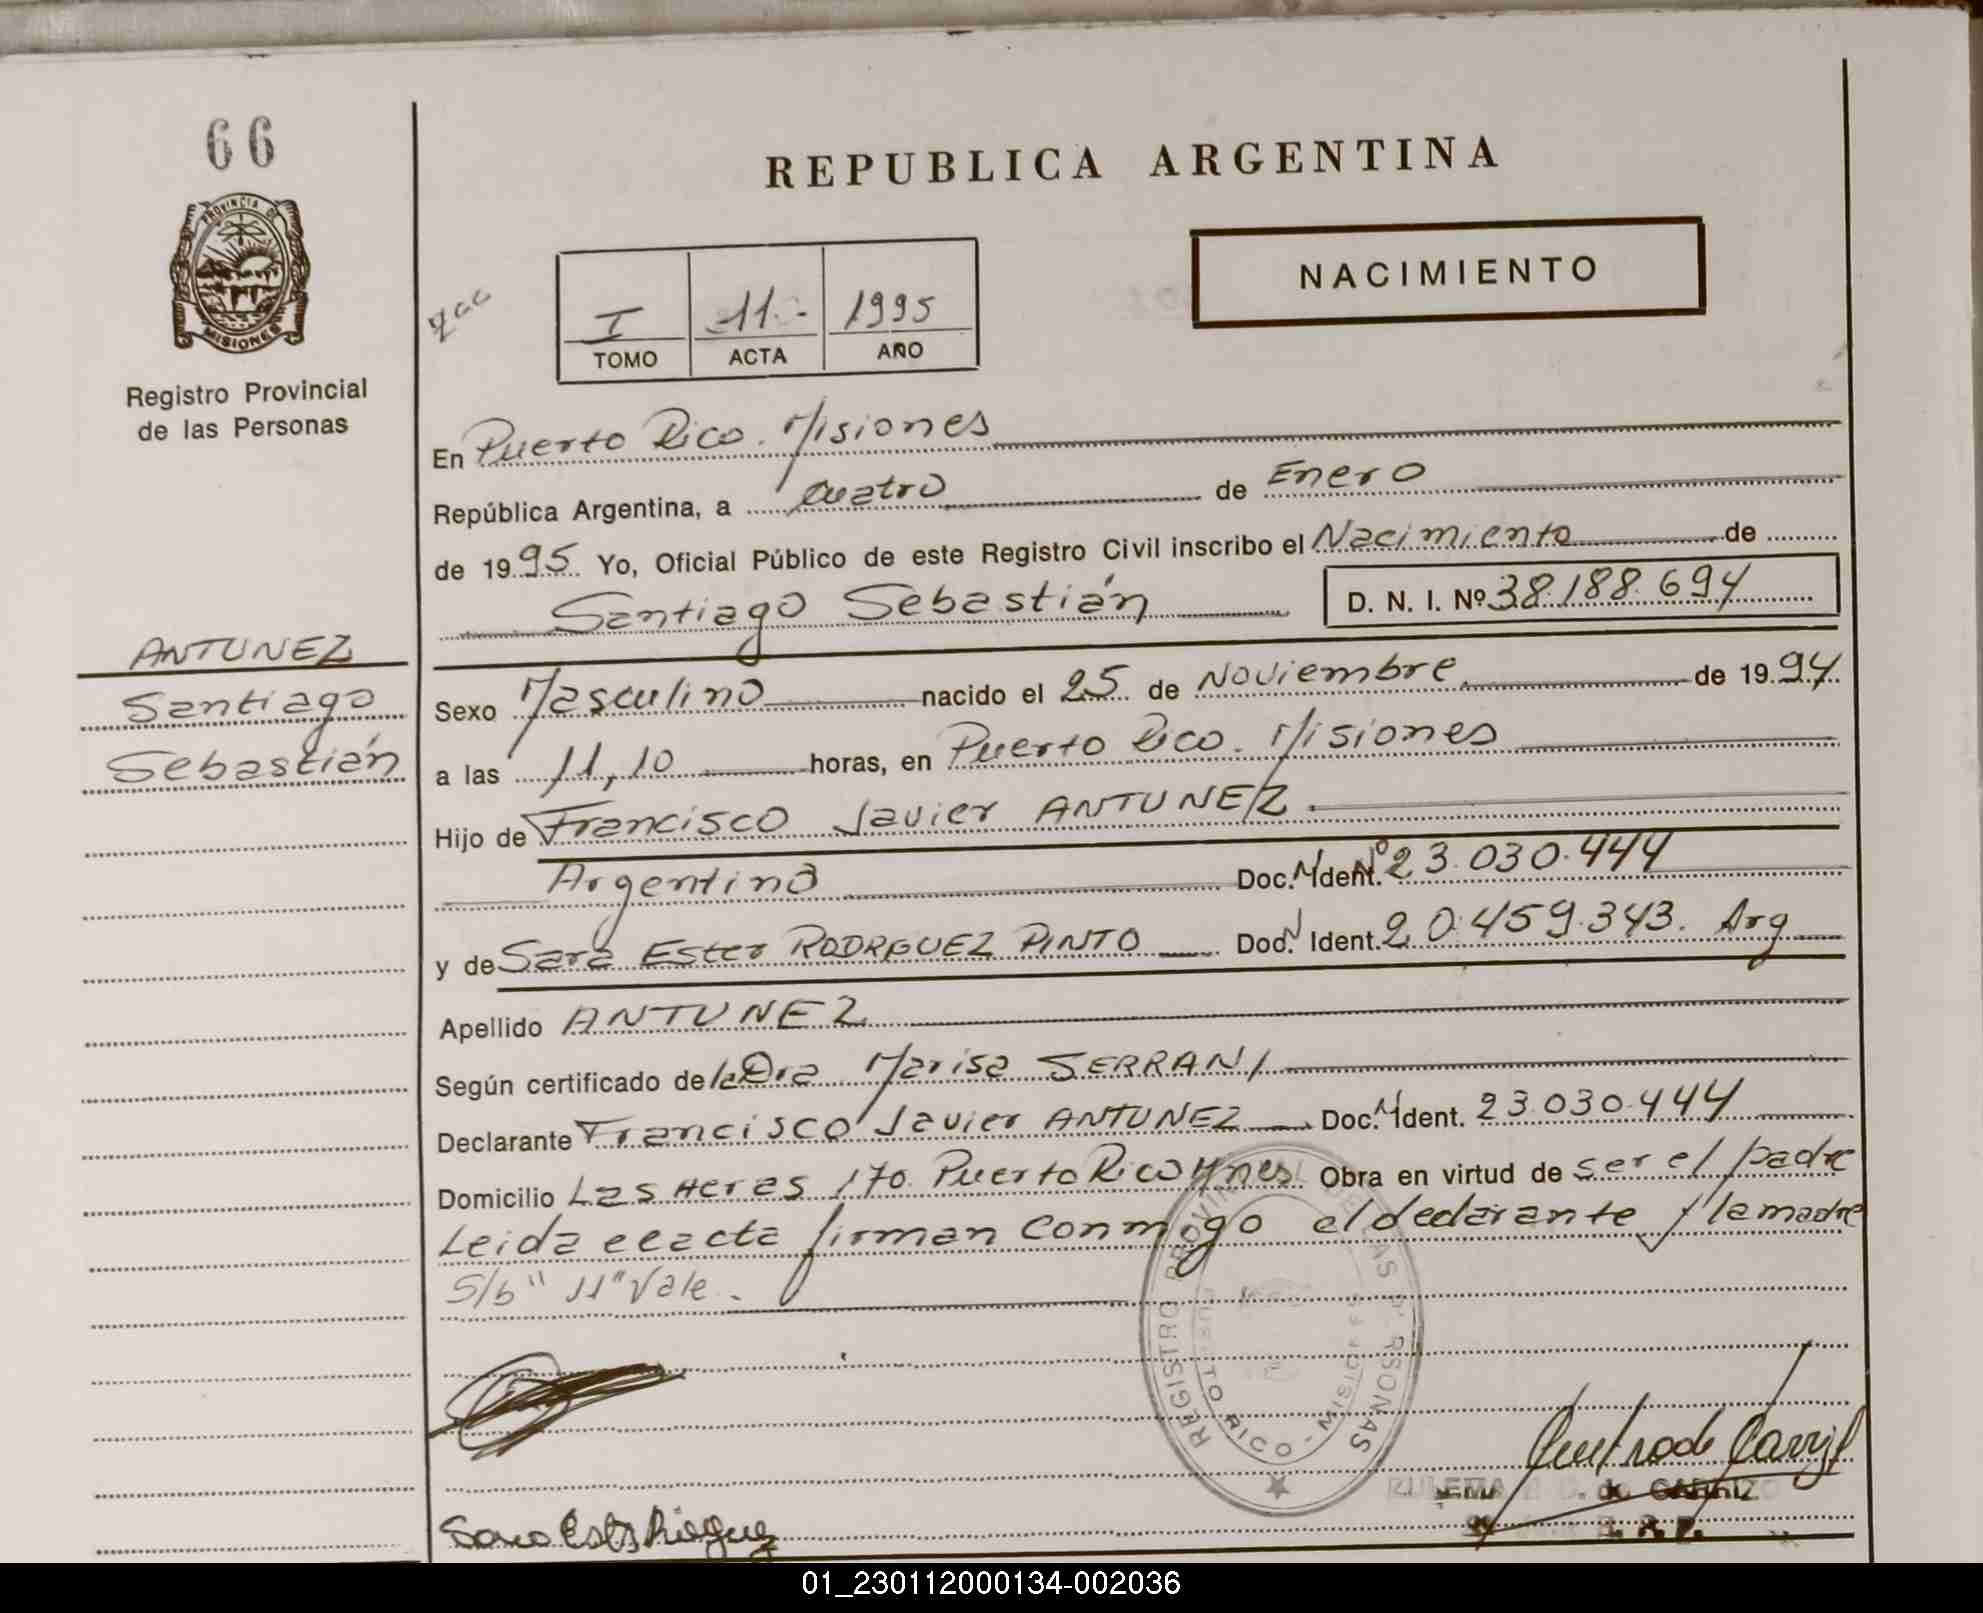 66
REPUBLICA ARGENTINA
PROVINCIA DE
MISIONES
NACIMIENTO
I 11.- 1995
TOMO ACTA AÑO
Registro Provincial
de las Personas
En Puerto Rico. Misiones
República Argentina, a cuatro de Enero
de 1995 Yo, Oficial Público de este Registro Civil inscribo el Nacimiento de
Santiago Sebastián D. N. I. Nº 38.188.694
ANTUNEZ
Santiago
Sebastián
Sexo Masculino nacido el 25 de Noviembre de 1994
a las 11,10 horas, en Puerto Rico. Misiones
Hijo de Francisco Javier ANTUNEZ.
Argentino Doc. N Ident. Nº 23.030.444
y de Sara Ester RODRGUEZ PINTO Doc. N Ident. 20.459.343. Arg
Apellido ANTUNEZ
Según certificado de la Dra Marisa SERRANI
Declarante Francisco Javier ANTUNEZ Doc. N Ident. 23.030.444
Domicilio Las Heras 170. Puerto Rico Mnes. Obra en virtud de ser el padre
Leida el acta firman conmigo el declarante y la madre
S/b "11" Vale.
REGISTRO PROVINCIAL DE LAS PERSONAS
PUERTO RICO - MISIONES
ZULEMA de CARRIZO
01_230112000134-002036